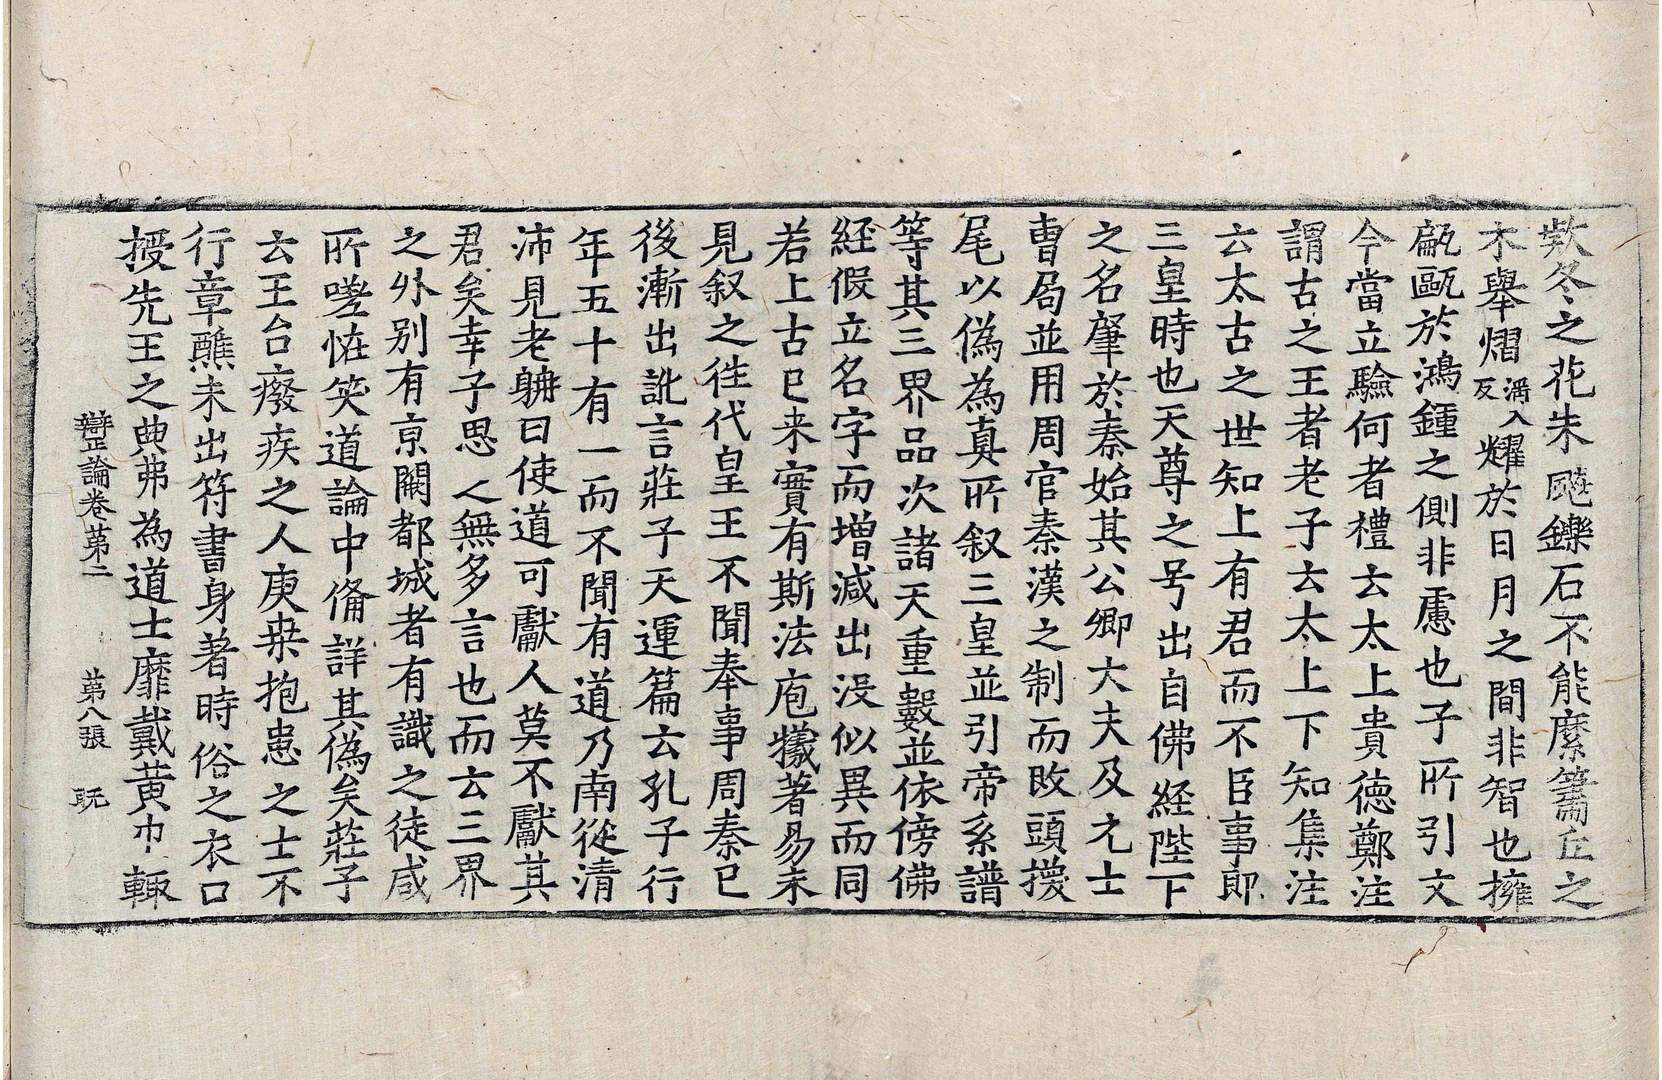 欵冬之花朱飈鑠石不能縻籥丘之
木舉熠㵝入反耀於日月之間非智也擁
甗甌於鴻鍾之側非慮也子所引文
今當立驗何者禮云太上貴德鄭注
謂古之王者老子云太上下知集注
云太古之世知上有君而不臣事即
三皇時也天尊之号出自佛経陛下
之名肇於秦始其公卿大夫及元士
曺局並用周官秦漢之制而改頭㨄
尾以偽為真所叙三皇並引帝系譜
等其三界品次諸天重數並依傍佛
経假立名字而增減出没似異而同
若上古已来實有斯法庖犧著易未
見叙之往代皇王不聞奉事周秦已
後漸出訛言莊子天運篇云孔子行
年五十有一而不聞有道乃南從清
沛見老聃曰使道可獻人莫不獻其
君矣幸子思之無多言也而云三界
之外别有京闕都城者有識之徒咸
所嗟恠笑道論中俻詳其偽矣莊子
云王台癈疾之人庚桒抱患之士不
行章醮未出符書身著時俗之衣口
授先王之典弗為道士靡戴黄巾輙
辯正論卷苐二 苐八張 𤣱